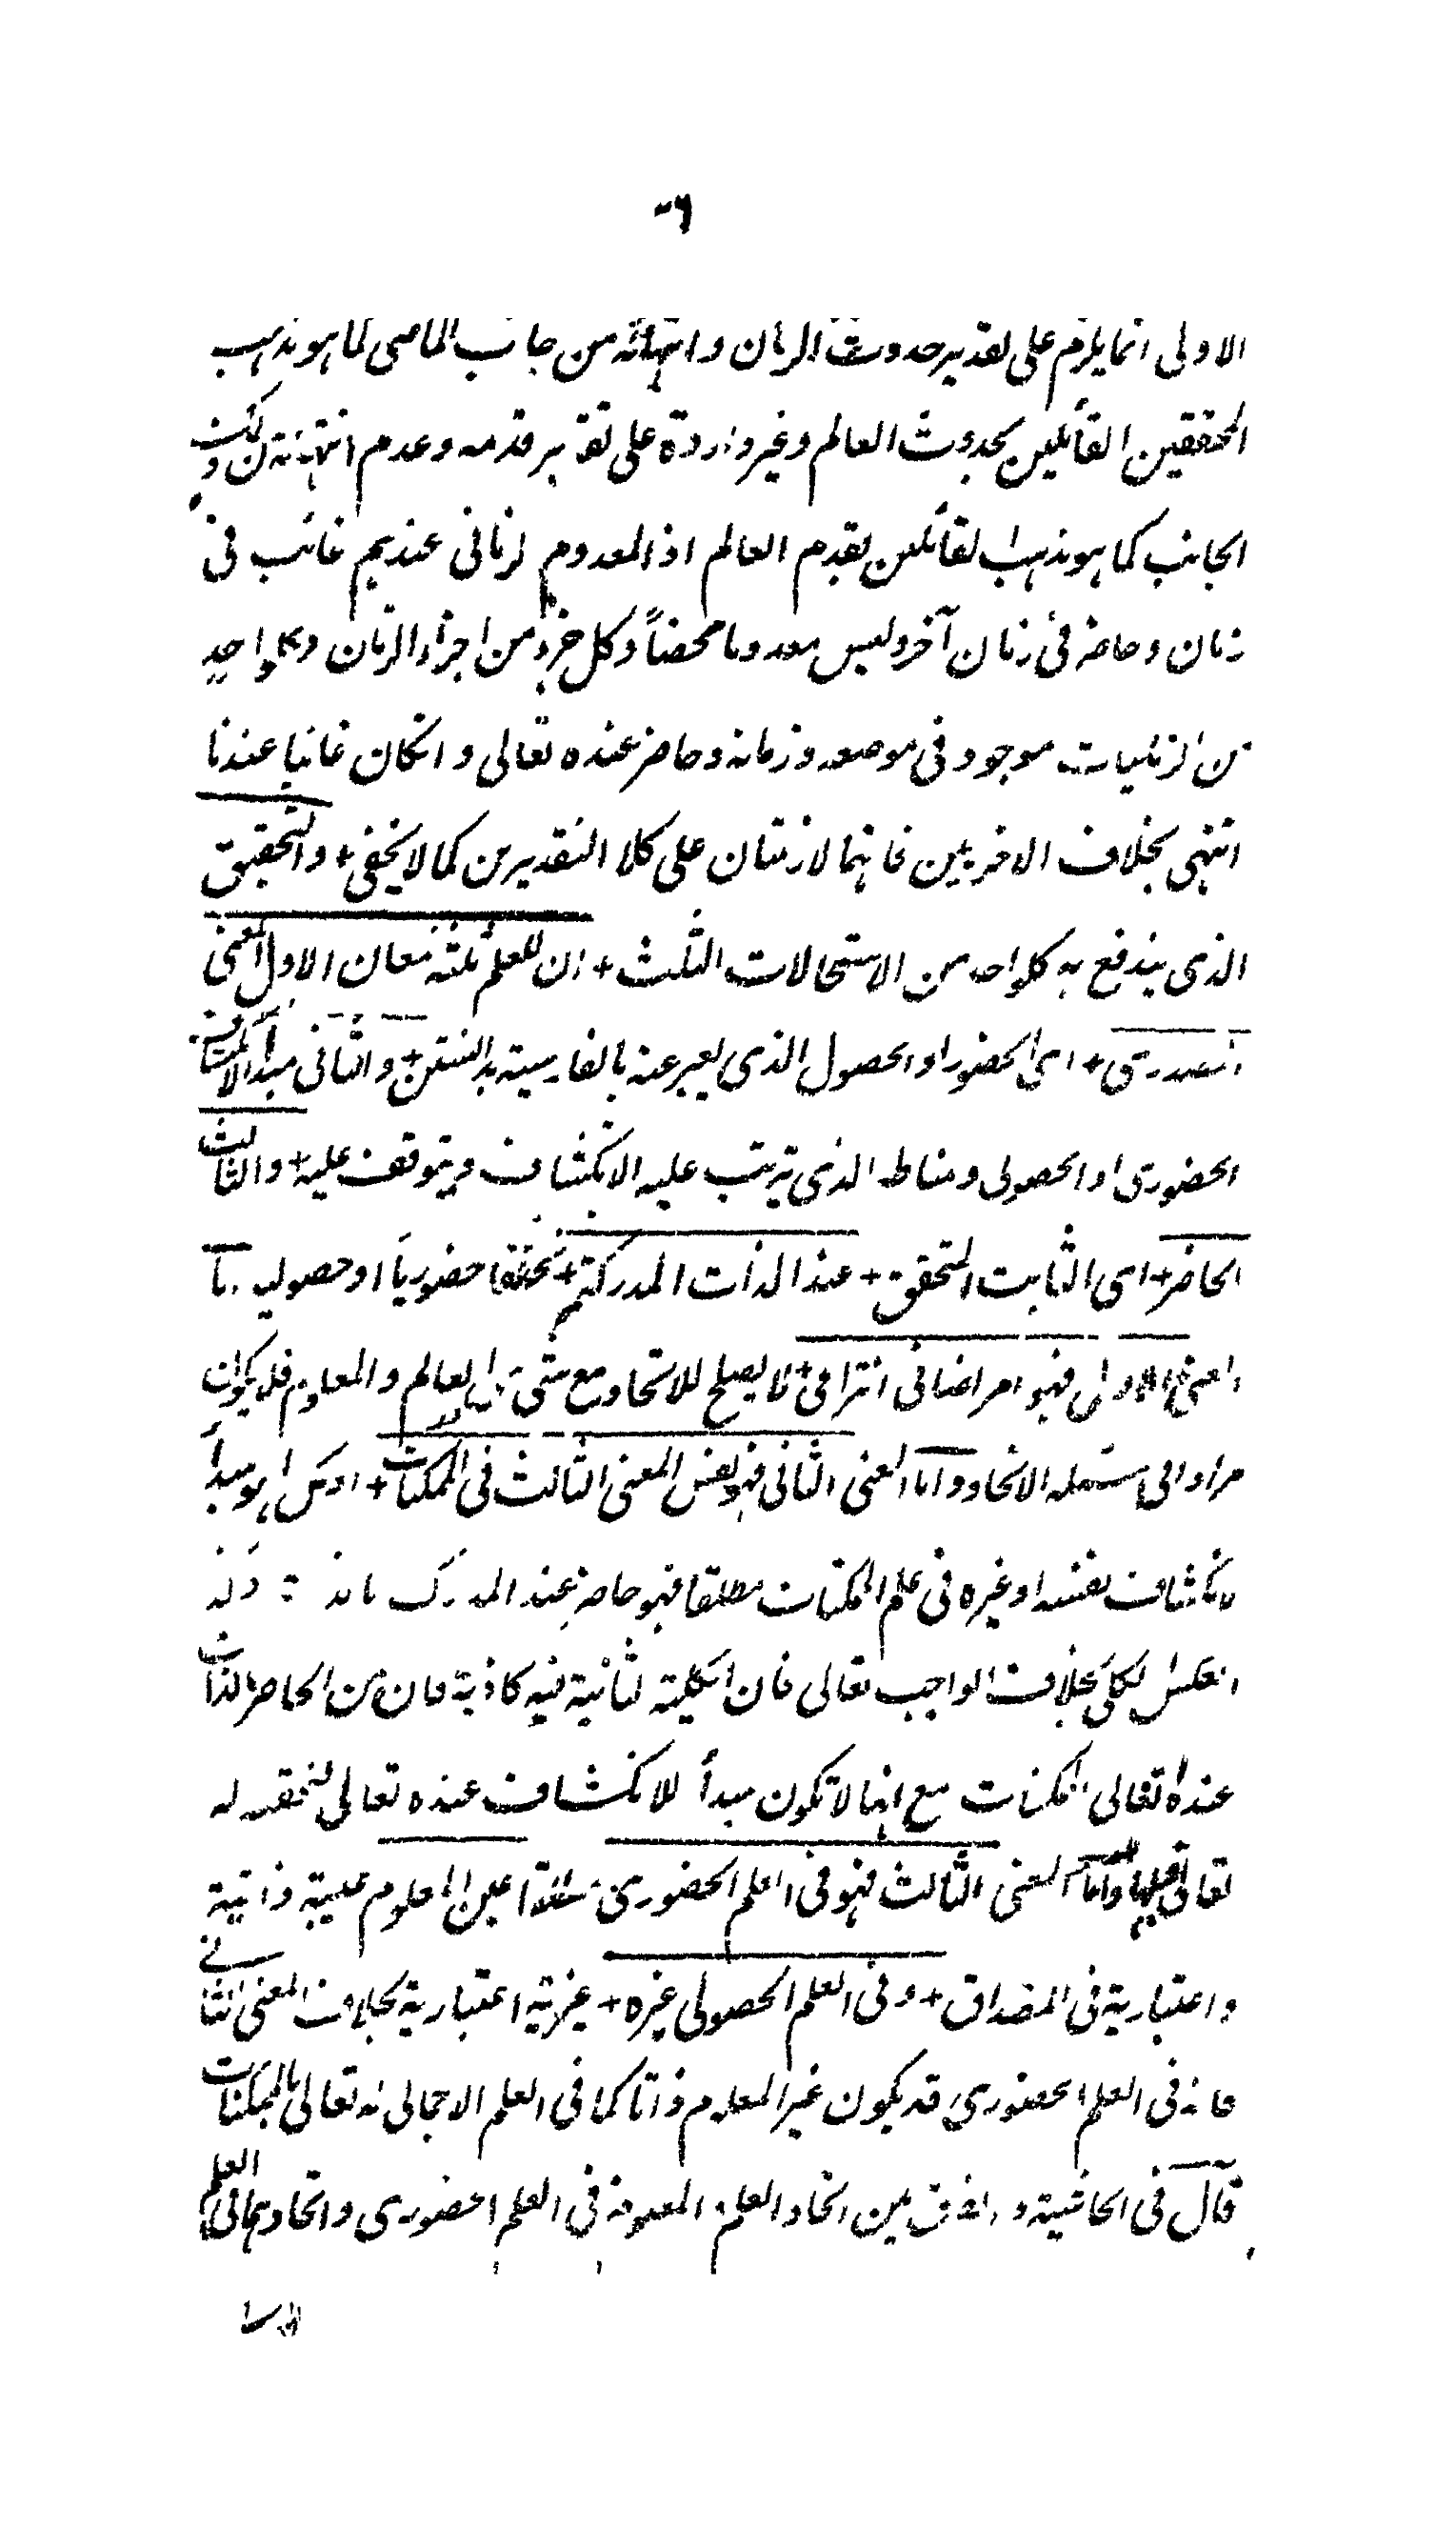 ٦
الاولى انما يلزم على تقدير حدوث الزمان وانتهائه من جانب الماضى كما هو مذهب
المحققين القائلين بحدوث العالم وغير واردة على تقدير قدمه وعدم انتهائه من ذلك
الجانب كما هو مذهب القائلين بقدم العالم اذ المعدوم الزمانى عندهم غائب فى
زمان وحاضر فى زمان آخر وليس معدوما محضاً وكل جزء من اجزاء الزمان وكلواحد
من الزمانيات موجود فى موضعه وزمانه وحاضر عنده تعالى وانكان غائبا عندنا
انتهى بخلاف الاخريين فانهما لازمتان على كلا التقديرين كما لا يخفى + والتحقيق
الذى يندفع به كلواحد من الاستحالات الثلث + ان للعلم ثلثة معان الاول المعنى
المصدرى + اى الحضور او الحصول الذى يعبر عنه بالفارسية بدانستن + والثانى مبدأ الانكشاف
الحضورى او الحصولى ومناطه الذى يترتب عليه الانكشاف ويتوقف عليه + والثالث
الحاضر + اى الثابت المتحقق + عند الذات المدركة + تحققا حضوريا او حصوليا اما
المعنى الاول فهو امر اضافى انتزاعى + لا يصلح للاتحاد مع شئ من العالم والمعلوم فلا يكون
مرادا فى مسئلة الاتحاد واما المعنى الثانى فهو نفس المعنى الثالث فى الممكنات + اذ كل ما هو مبدأ
الانكشاف نفسه او غيره فى علم الممكنات مطلقا فهو حاضر عند المدرك
انعكس الكلى بخلاف الواجب تعالى فان الكلية الثانية فيه كاذبة فان من الحاضر الذات
عنده تعالى الممكنات مع انها لا تكون مبدأ للانكشاف عنده تعالى لتحققه له
تعالى قبلها واما المعنى الثالث فهو فى العلم الحضورى مطلقا عين المعلوم عينية ذاتية
واعتبارية فى المصداق + وفى العلم الحصولى غيره + غيرية اعتبارية بخلاف المعنى الثانى
فانه فى العلم الحضورى قد يكون غير المعلوم ذاتا كما فى العلم الاجمالى له تعالى بالممكنات
قال فى الحاشية والفرق بين اتحاد العلم والمعلوم فى العلم الحضورى واتحادهما فى العلم